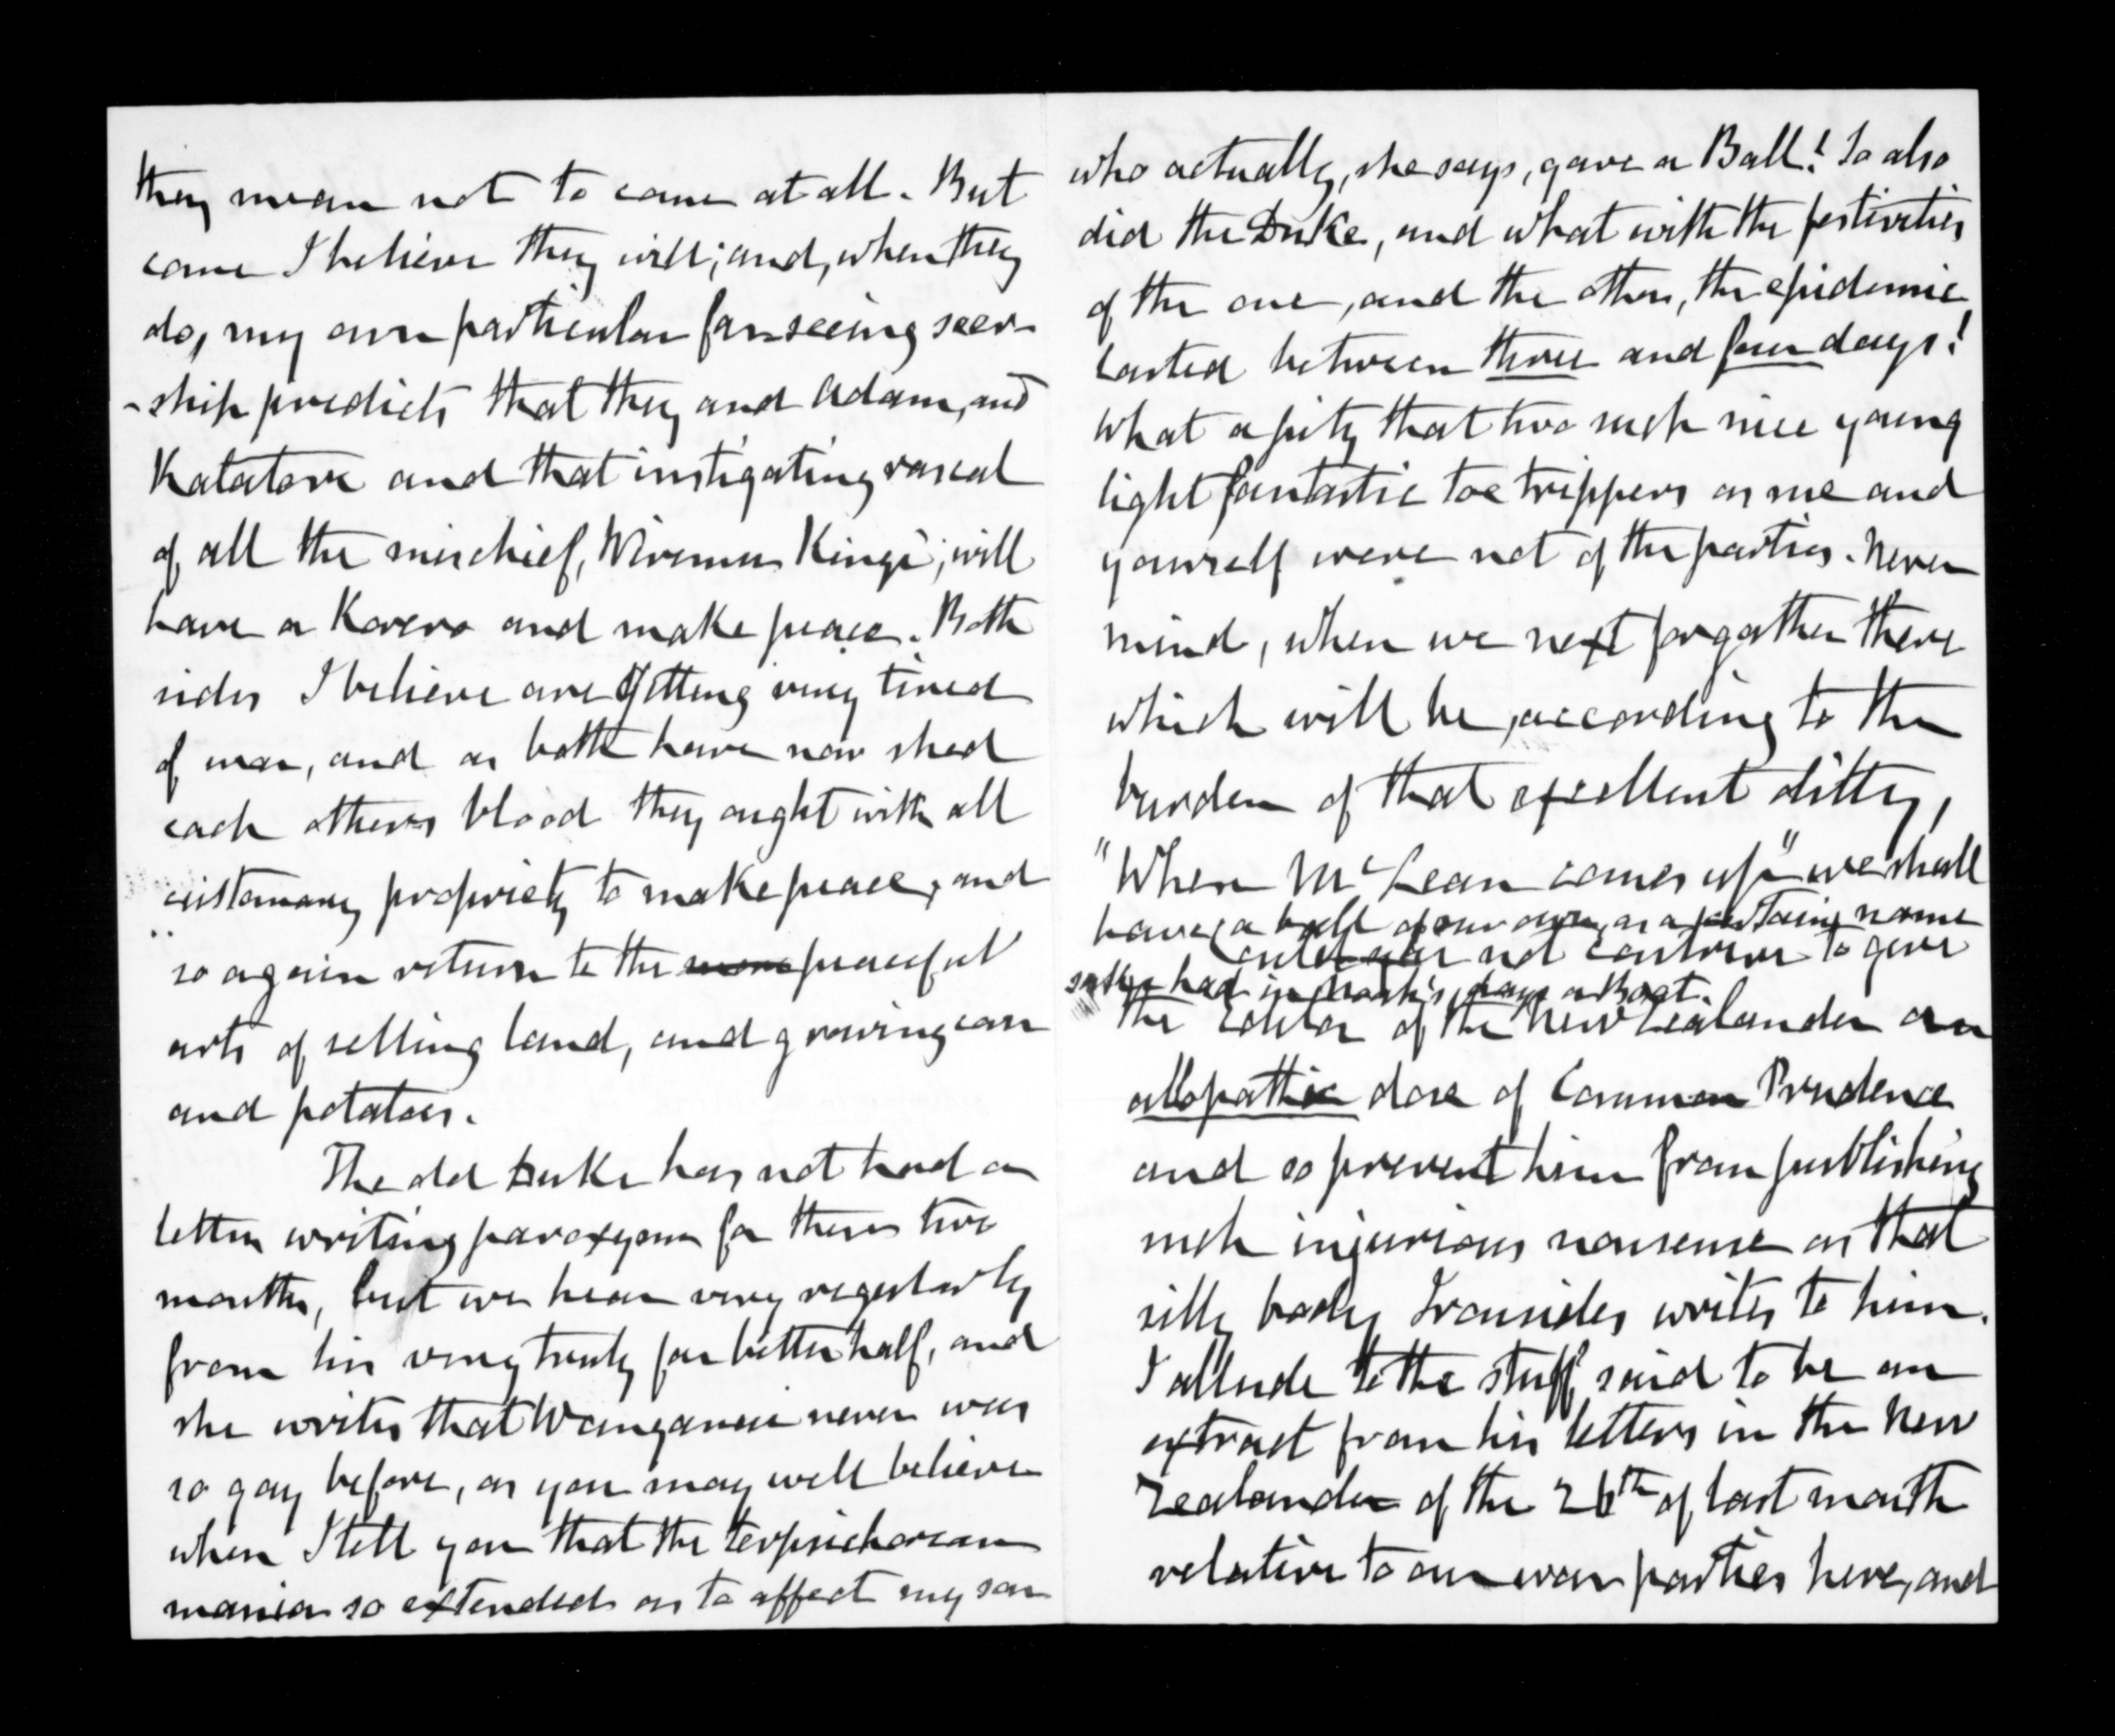 they mean not to come at all. But
come I believe they will; and, when they
do, my own particular far-seeing seer-
-ship predicts that they and Adam, and
Katatore and that instigating rascal
of all the mischief, Wiremu Kingi, will
have a Korero and make peace. Both
sides I believe are getting very tired
of war, and as both have now shed
each others blood they ought with all
customary propriety to make peace, and
so again return to the more peaceful
arts of selling land, and growing corn
and potatoes.
The old Duke has not had a
letter writing paroxysm for these two
months, but we hear very regularly
from his very truly far better half, and
she writes that Wanganui never was
so gay before, as you may well believe
when I tell you that the terpsichorean
mania so extended as to affect my son
who actually, she says, gave a Ball! So also
did the Duke, and what with the festivities
of the one, and the other, the epidemic
lasted between three and four days!
What a pity that two such nice young
light fantastic toe trippers as me and
yourself were not of the parties. Never
mind, when we next forgather there
which will be, according to the
burden of that excellent ditty,
"When McLean comes up" we shall
have a ball of our own, as a certain name
sake had in Noah's days a Boat.
Could you not contrive to give
the Editor of the New Zealander an
allopathic dose of Common Prudence
and so prevent him from publishing
such injurious nonsense as that
silly body Ironsides writes to him.
I allude to the stuff, said to be an
extract from his letters in the New
Zealander of the 26th of last month
relative to our war parties here, and